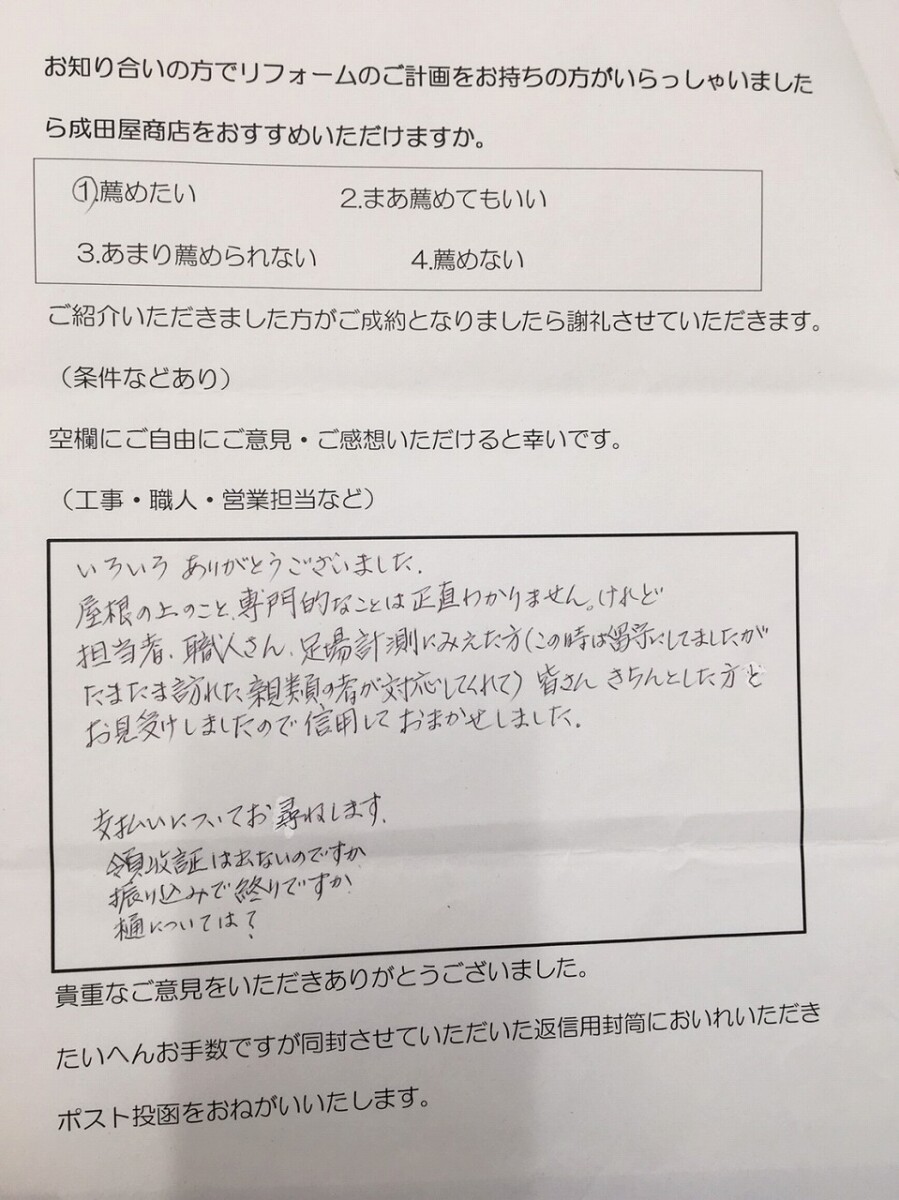 お知り合いの方でリフォームのご計画をお持ちの方がいらっしゃいました
ら成田屋商店をおすすめいただけますか。
1.薦めたい 2.まあ薦めてもいい
3.あまり薦められない 4.薦めない
ご紹介いただきました方がご成約となりましたら謝礼させていただきます。
（条件などあり）
空欄にご自由にご意見・ご感想いただけると幸いです。
（工事・職人・営業担当など）
いろいろ ありがとうございました.
屋根の上のこと、専門的なことは正直わかりません。けれど
担当者、職人さん、足場計測にみえた方(この時は留守にしてましたが
たまたま訪れた親類の者が対応してくれて) 皆さん きちんとした方と
お見受けしましたので信用して おまかせしました.
支払いについてお尋ねします.
領収証は出ないのですか
振り込みで終りですか?
樋については?
貴重なご意見をいただきありがとうございました。
たいへんお手数ですが同封させていただいた返信用封筒においれいただき
ポスト投函をおねがいいたします。